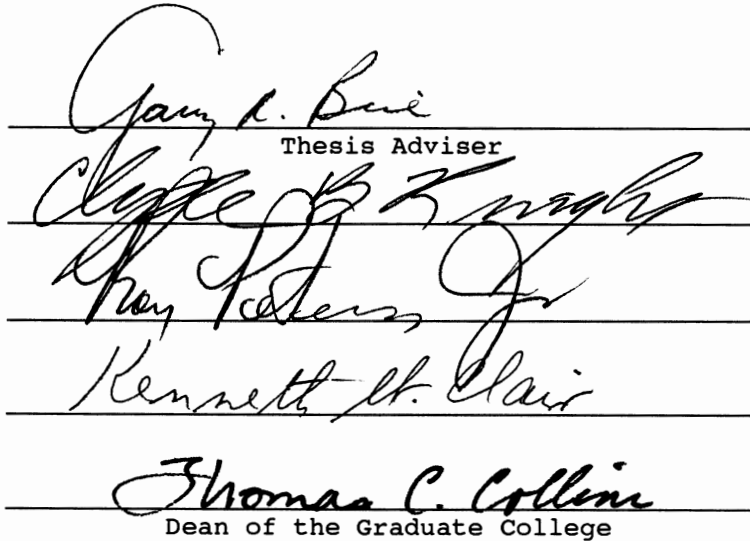 Gary R. Bice
Thesis Adviser
Clyde B Knight
Roy Peters Jr
Kenneth St. Clair
Thomas C. Collins
Dean of the Graduate College